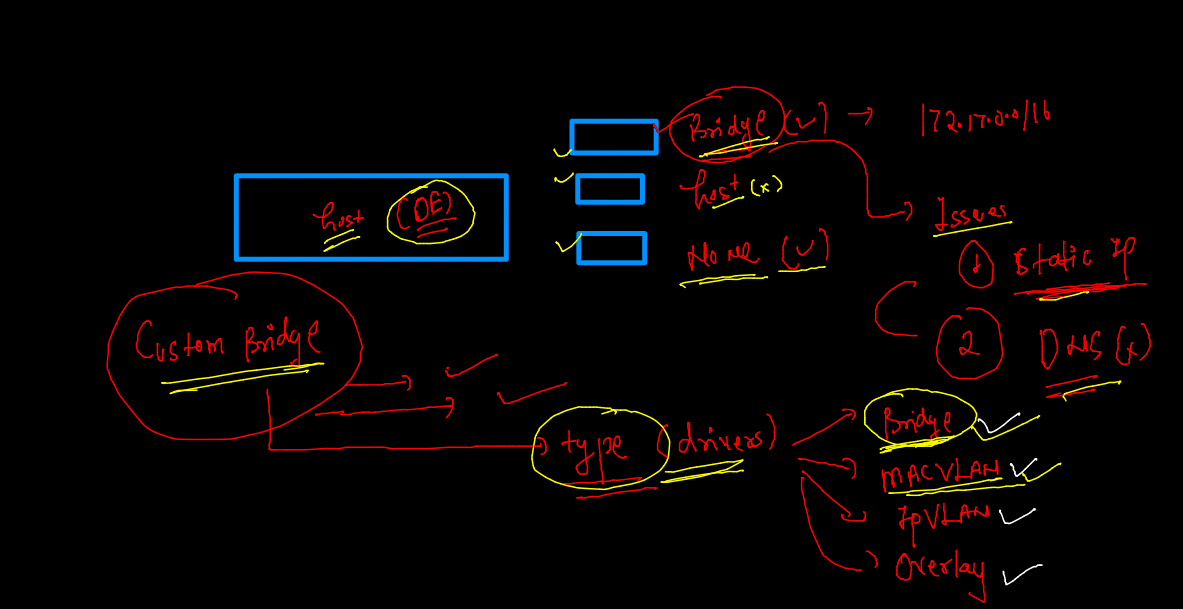 Bridge (✓) → 172.17.0.0/16
host (x)
host (DE)
None (✓)
Issues
1 Static IP
2 DNS (x)
Custom Bridge
type (drivers)
Bridge ✓
MACVLAN ✓
IpVLAN ✓
Overlay ✓